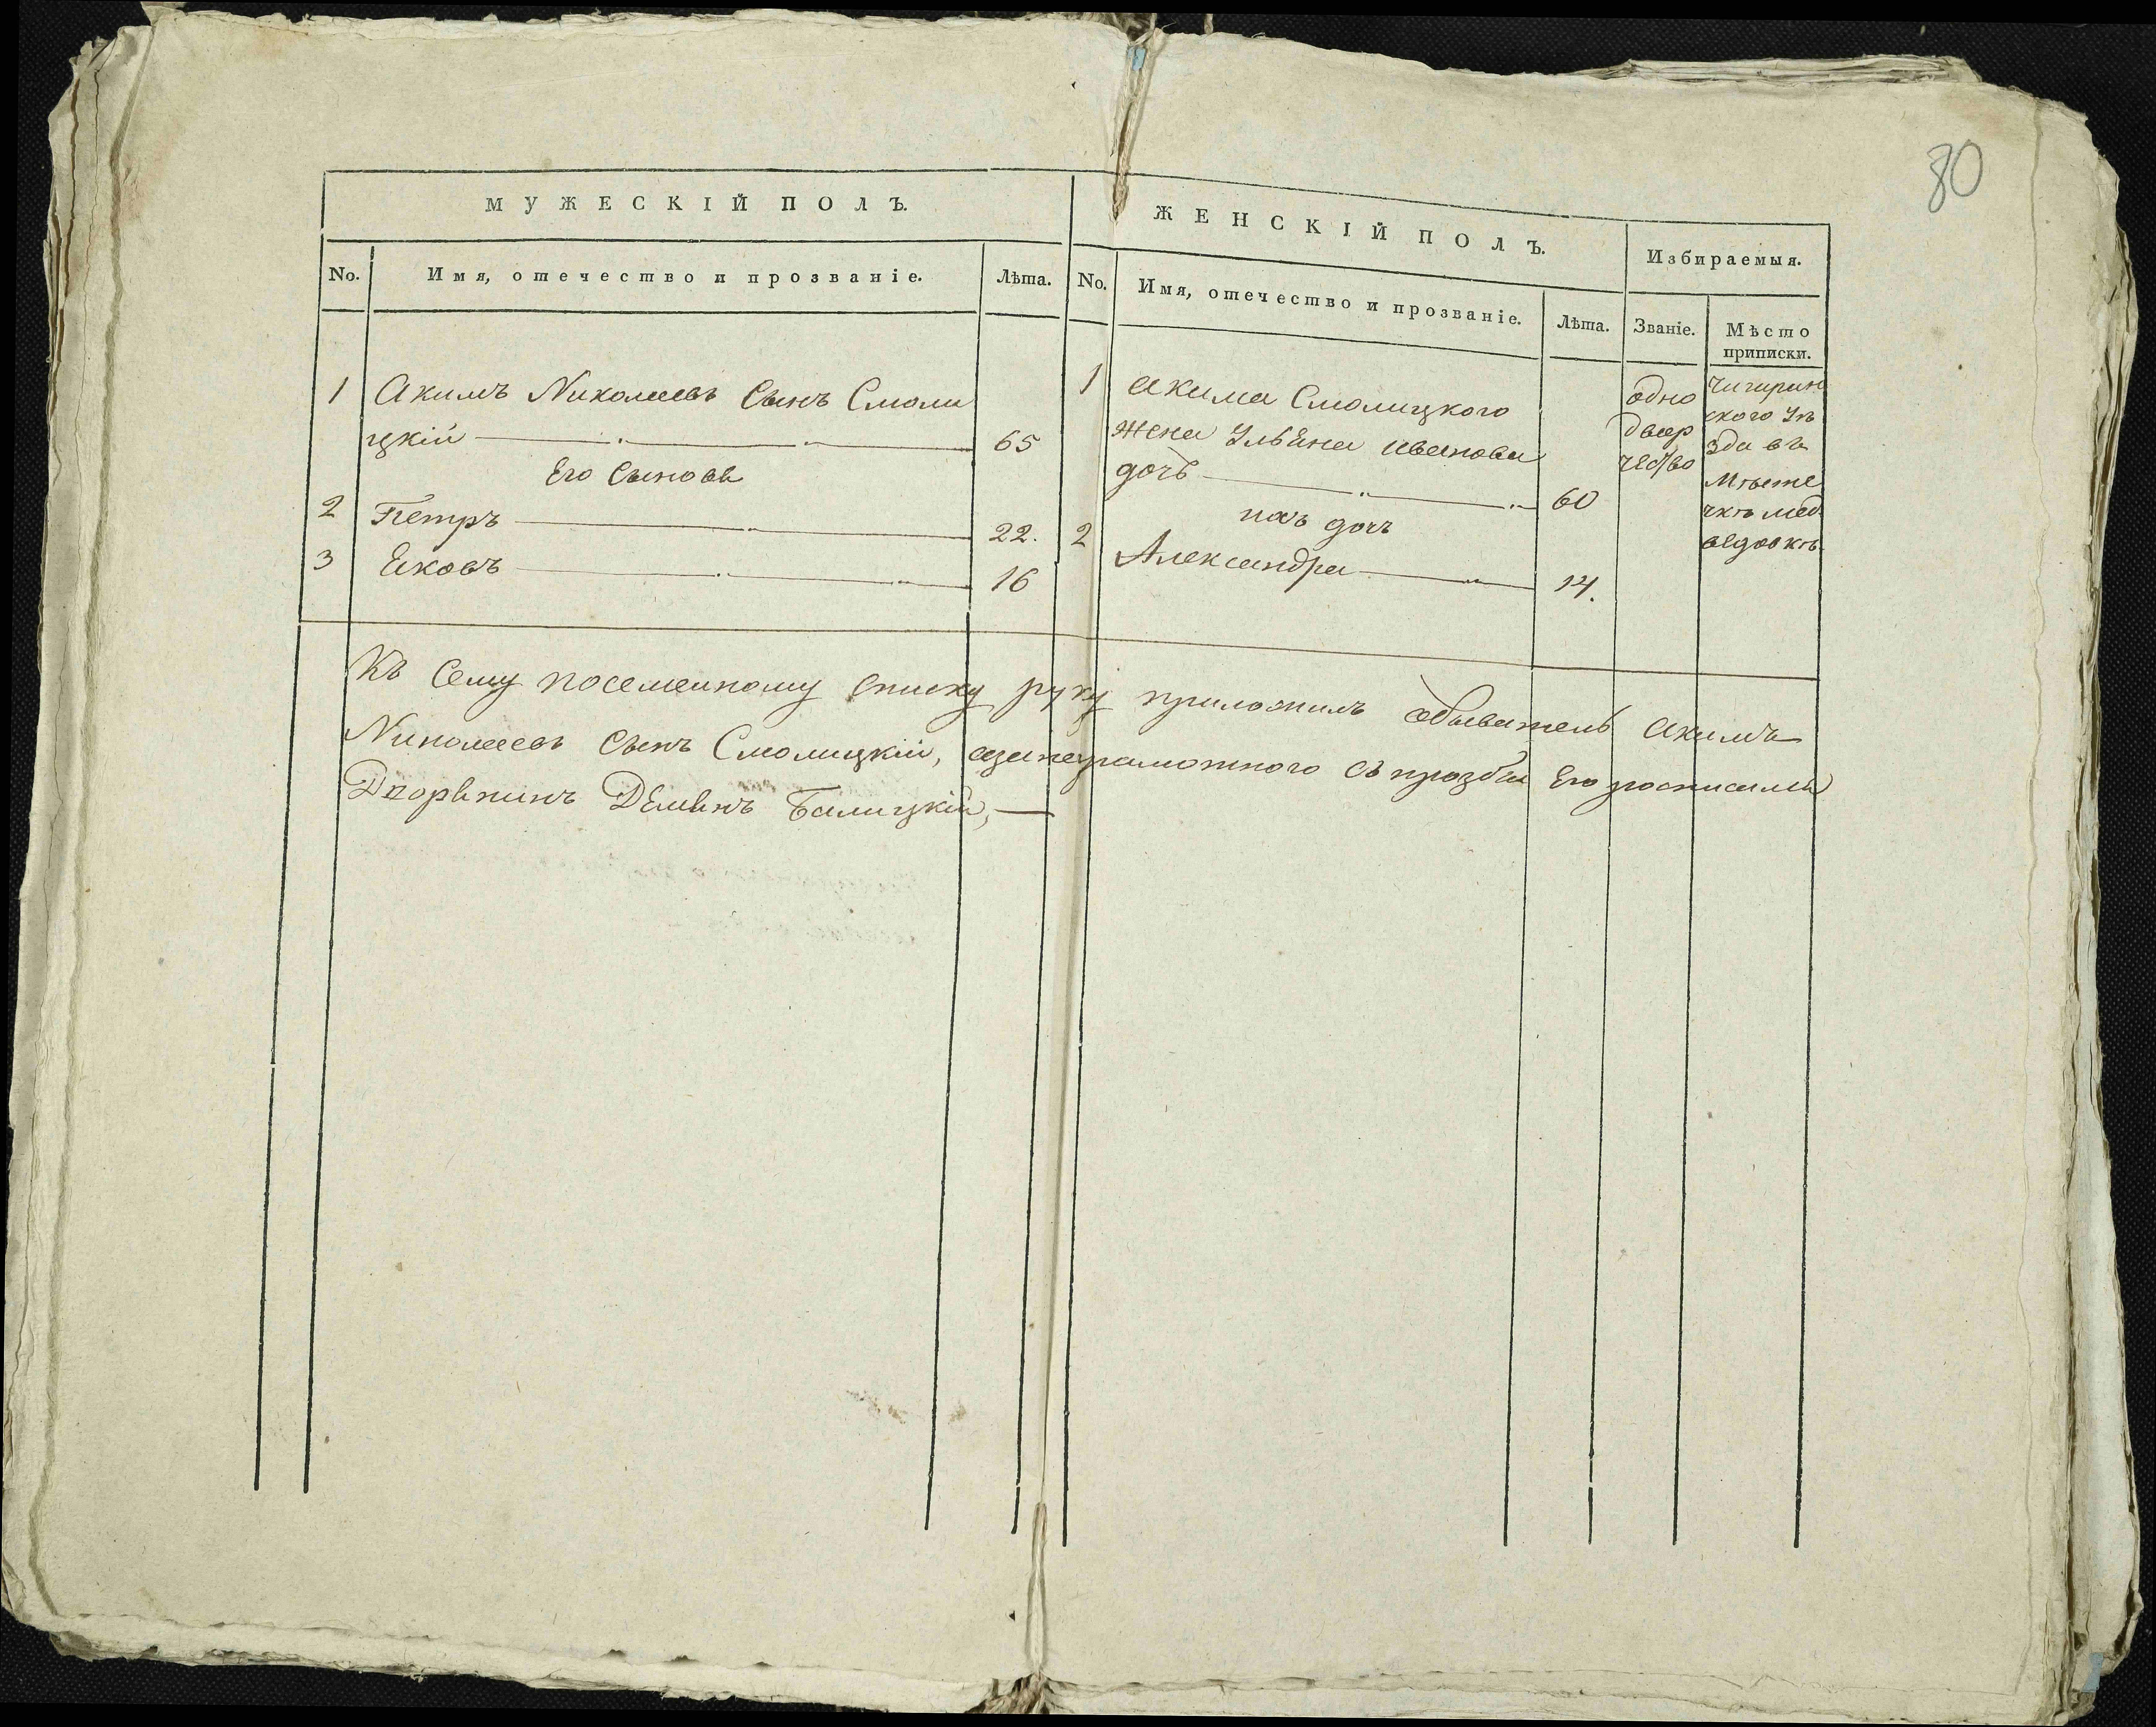 80
МУЖЕСКІЙ ПОЛЪ.
ЖЕНСКІЙ ПОЛЪ.
Избираемыя.
No. Имя, отечество и прозваніе. Лѣта.
No. Имя, отечество и прозваніе. Лѣта. Званіе. Мѣсто приписки.
1 Акимъ Николаевъ Сынъ Смоли
цкій 65
Его Сыновя
2 Петръ 22.
3 Яковъ 16
1 Акима Смолицкого
жена Ульяна Иванова
дочь 60
ихъ дочь
2 Александра 14.
одно
двор
чество
Чигирин
ского Уѣ
зда въ
Мѣсте
чкѣ Мед
ведовкѣ.
Къ Сему посемейному списку руку приложилъ обыватель Акимъ
Николаевъ Сынъ Смолицкій, азанеграмотного съ прозбы Его росписался
Дворянинъ Демянъ Балицкій,